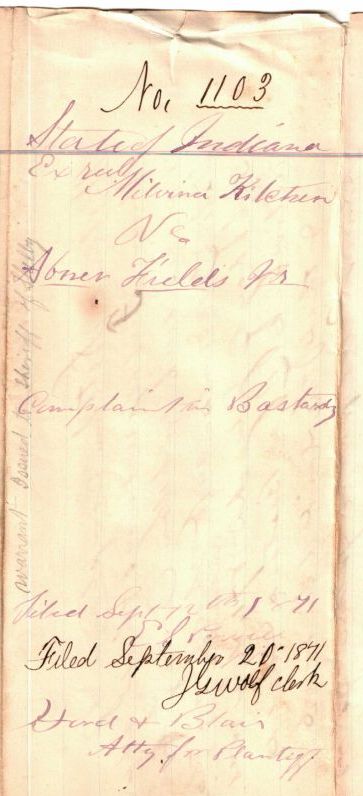 No. 1103
State of Indiana
Ex rel
Milvina Kitchen
Vs
Abner Fields Jr
Complaint in Bastardy
Filed Sept 12th 1871
Filed September 20 1871
J G Wolf clerk
& Blair
Atty for Plantiff
warrant issued to Sheriff of Shelby